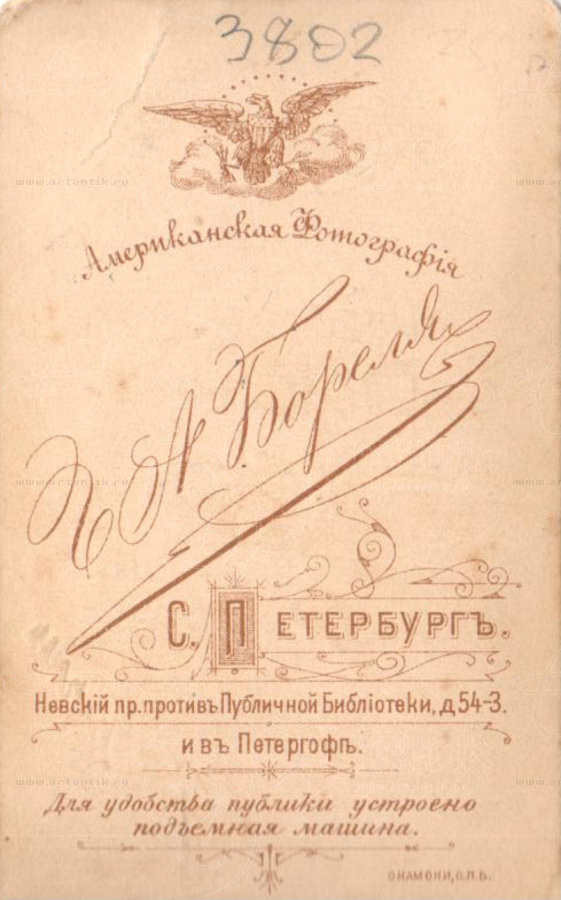 3802
Американская Фотографія
А Бореля
С. ПЕТЕРБУРГЪ.
Невскій пр. противъ Публичной Библіотеки, д 54-3.
и въ Петергофѣ.
Для удобства публики устроено
подъемная машина.
ОКАМОНИ, С.П.Б.
www.artantik.ru